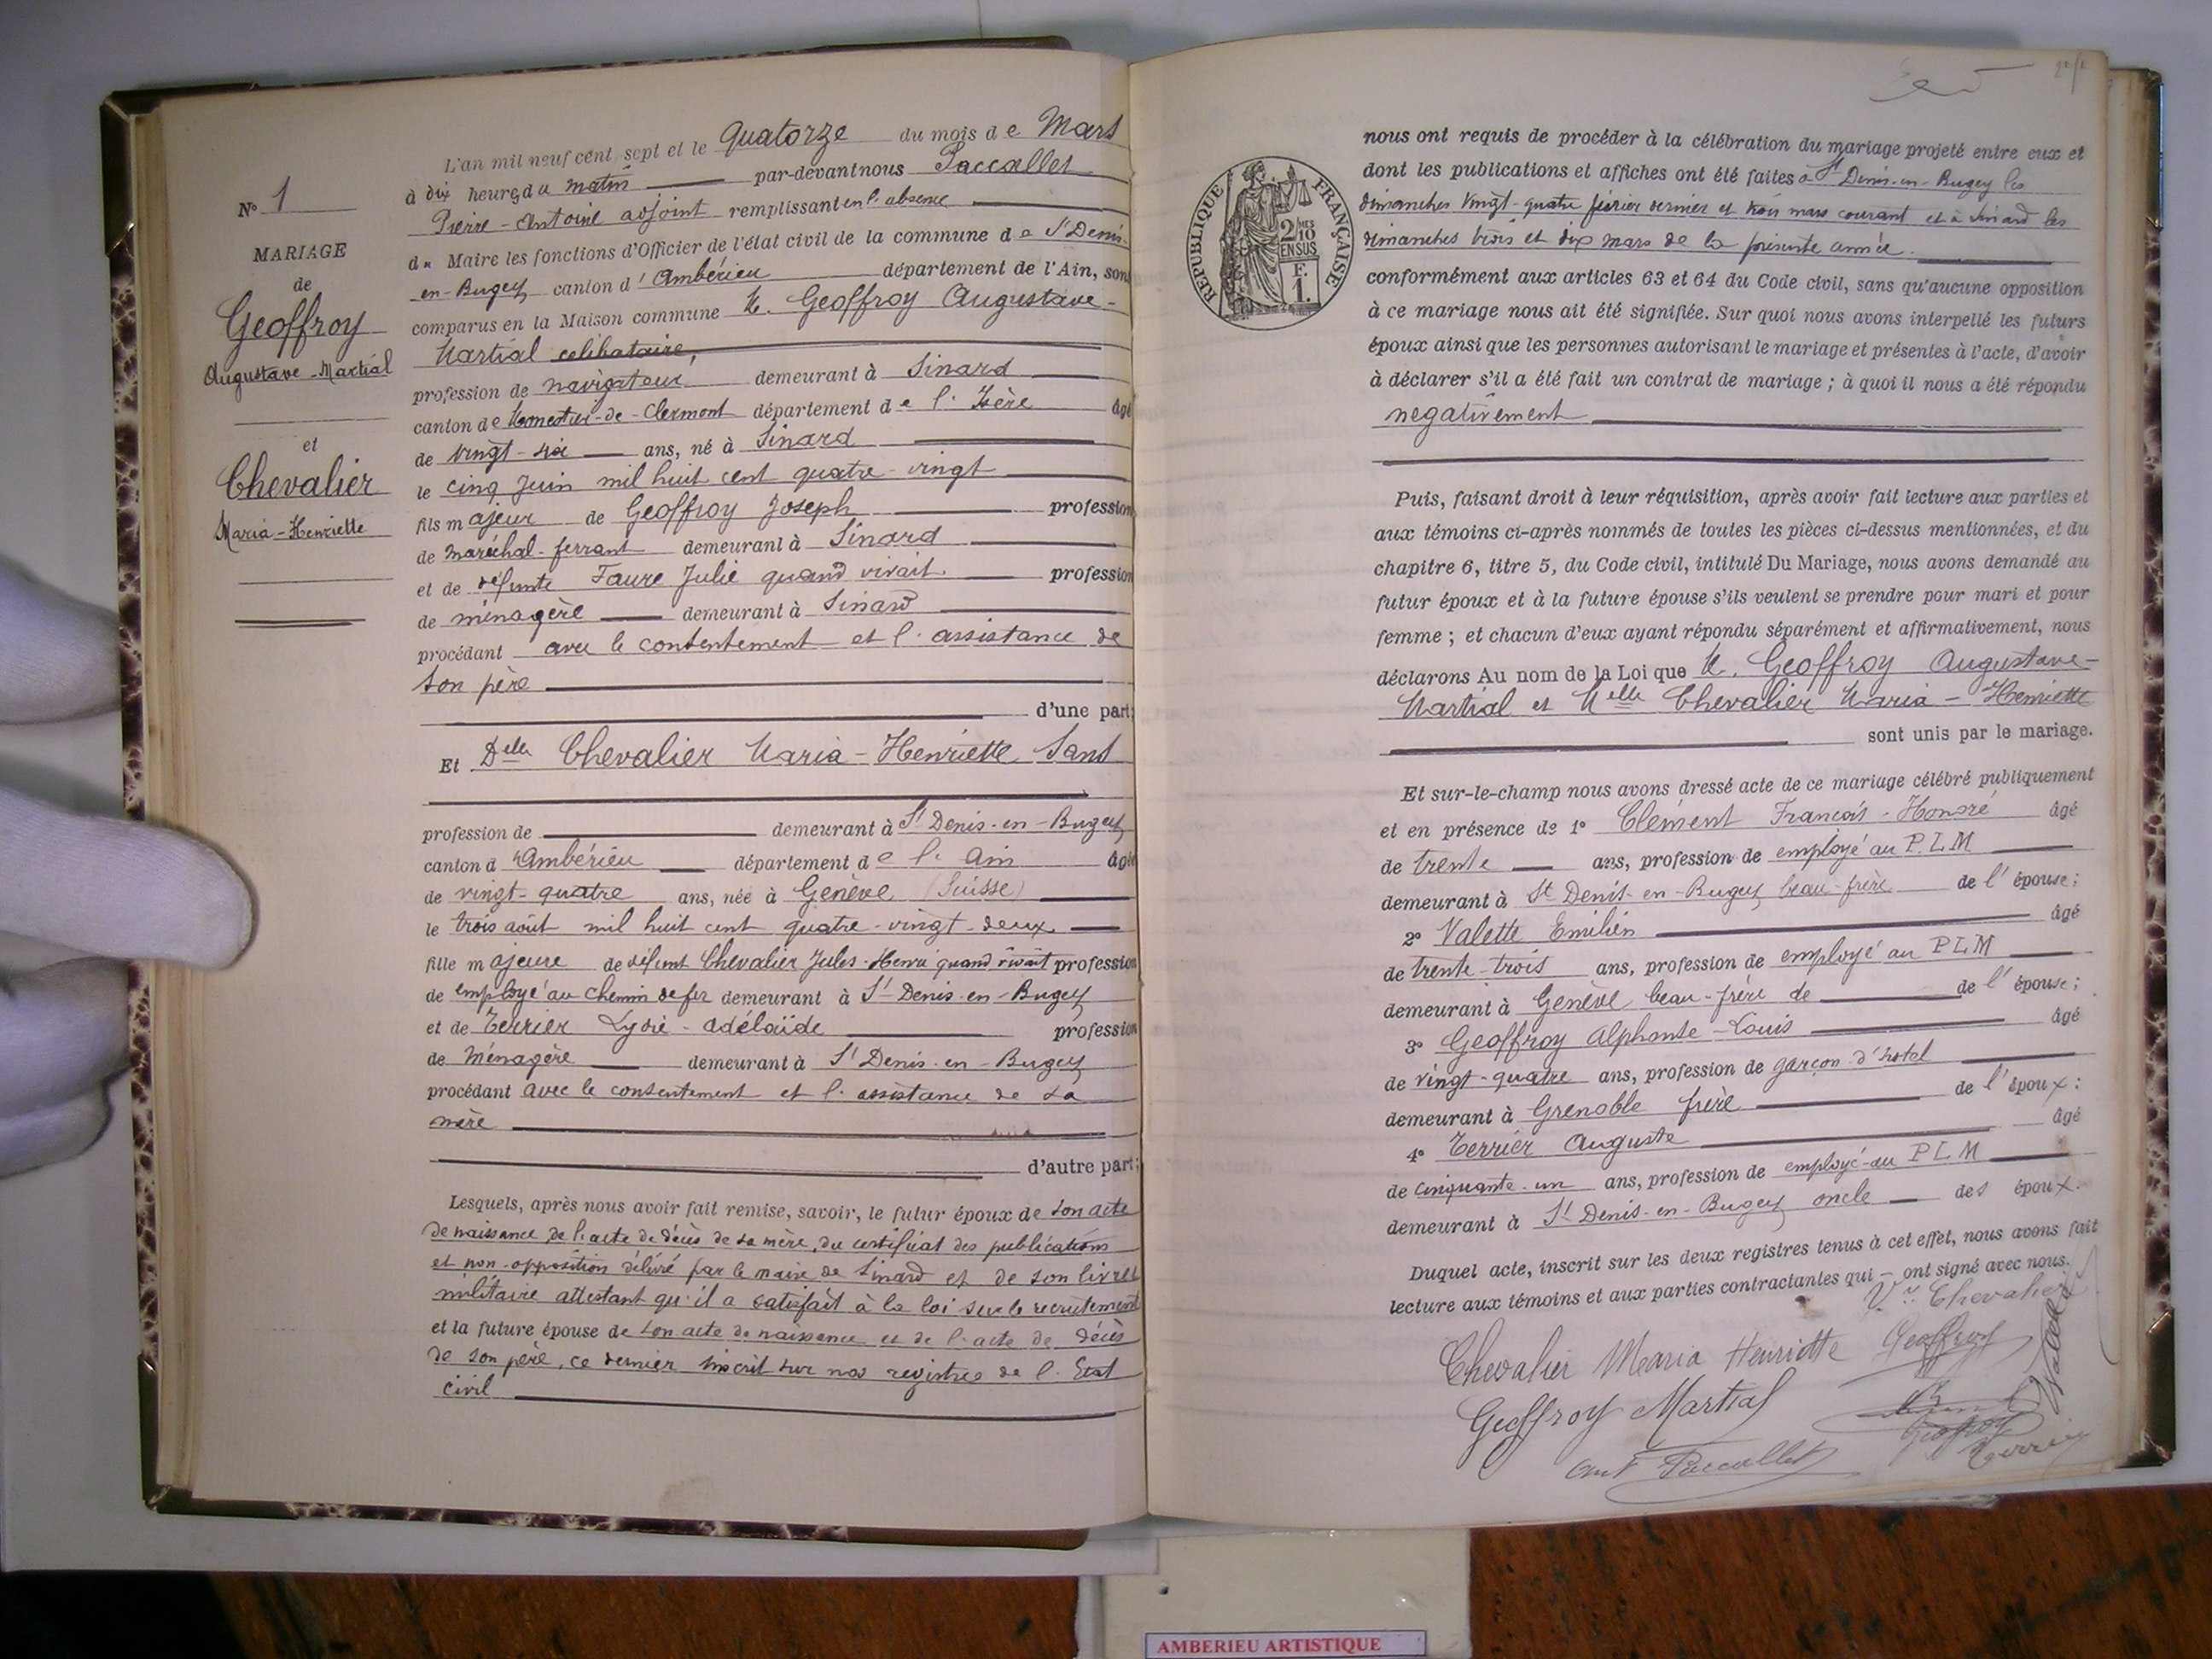 L'an mil neuf cent sept et le quatorze du mois de Mars
à dix heures du matin par-devant nous Paccallet
Pierre-Antoine adjoint remplissant en l'absence
du Maire les fonctions d'Officier de l'état civil de la commune de St Denis-
en-Bugey canton d'Ambérieu département de l'Ain, sont
comparus en la Maison commune M. Geoffroy Augustave-
Martial celibataire,
profession de navigateur demeurant à Sinard
canton de Monestier-de-Clermont département de l'Isère âgé
de vingt-six ans, né à Sinard
le cinq Juin mil huit cent quatre-vingt
fils majeur de Geoffroy Joseph profession
de maréchal-ferrant demeurant à Sinard
et de défunte Faure Julie quand vivait profession
de ménagère demeurant à Sinard
procédant avec le consentement et l'assistance de
son père
d'une part;
Et Delle Chevalier Maria-Henriette Sans
profession de demeurant à St Denis-en-Bugey
canton d'Ambérieu département de l'Ain âgée
de vingt-quatre ans, née à Genève (Suisse)
le trois août mil huit cent quatre-vingt-deux
fille majeure de défunt Chevalier Jules-Henri quand vivait profession
de employé au chemin de fer demeurant à St Denis-en-Bugey
et de Terrier Lydie-Adélaïde profession
de Ménagère demeurant à St Denis-en-Bugey
procédant avec le consentement et l'assistance de sa
mère
d'autre part;
Lesquels, après nous avoir fait remise, savoir, le futur époux de son acte
de naissance, de l'acte de décès de sa mère, du certificat des publications
et non-opposition délivré par le maire de Sinard et de son livret
militaire attestant qu'il a satisfait à la loi sur le recrutement
et la future épouse de son acte de naissance et de l'acte de décès
de son père, ce dernier inscrit sur nos registres de l'Etat
civil
N° 1
MARIAGE
de
Geoffroy
Augustave-Martial
et
Chevalier
Maria-Henriette
REPUBLIQUE FRANÇAISE
2/10 MES
EN SUS
F.
1.
nous ont requis de procéder à la célébration du mariage projeté entre eux et
dont les publications et affiches ont été faites à St Denis-en-Bugey les
dimanches vingt-quatre février dernier et trois mars courant et à Sinard les
dimanches trois et dix mars de la présente année.
conformément aux articles 63 et 64 du Code civil, sans qu'aucune opposition
à ce mariage nous ait été signifiée. Sur quoi nous avons interpellé les futurs
époux ainsi que les personnes autorisant le mariage et présentes à l'acte, d'avoir
à déclarer s'il a été fait un contrat de mariage; à quoi il nous a été répondu
negativement
Puis, faisant droit à leur réquisition, après avoir fait lecture aux parties et
aux témoins ci-après nommés de toutes les pièces ci-dessus mentionnées, et du
chapitre 6, titre 5, du Code civil, intitulé Du Mariage, nous avons demandé au
futur époux et à la future épouse s'ils veulent se prendre pour mari et pour
femme; et chacun d'eux ayant répondu séparément et affirmativement, nous
déclarons Au nom de la Loi que M. Geoffroy Augustave-
Martial et Melle Chevalier Maria-Henriette
sont unis par le mariage.
Et sur-le-champ nous avons dressé acte de ce mariage célébré publiquement
et en présence de 1° Clément François-Honoré âgé
de trente ans, profession de employé au P.L.M
demeurant à St Denis-en-Bugey beau-frère de l'épouse;
2° Valette Emilien âgé
de trente-trois ans, profession de employé au PLM
demeurant à Genève beau-frère de de l'épouse;
3° Geoffroy Alphonse-Louis âgé
de vingt-quatre ans, profession de garçon d'hotel
demeurant à Grenoble frère de l'époux;
4° Terrier Auguste âgé
de cinquante-un ans, profession de employé-au PLM
demeurant à St Denis-en-Bugey oncle des époux.
Duquel acte, inscrit sur les deux registres tenus à cet effet, nous avons fait
lecture aux témoins et aux parties contractantes qui ont signé avec nous.
Vve Chevalier
Chevalier Maria Henriette Geoffroy
Valette
Geoffroy Martial
Geoffroy
Terrier
Ant Paccallet
AMBERIEU ARTISTIQUE